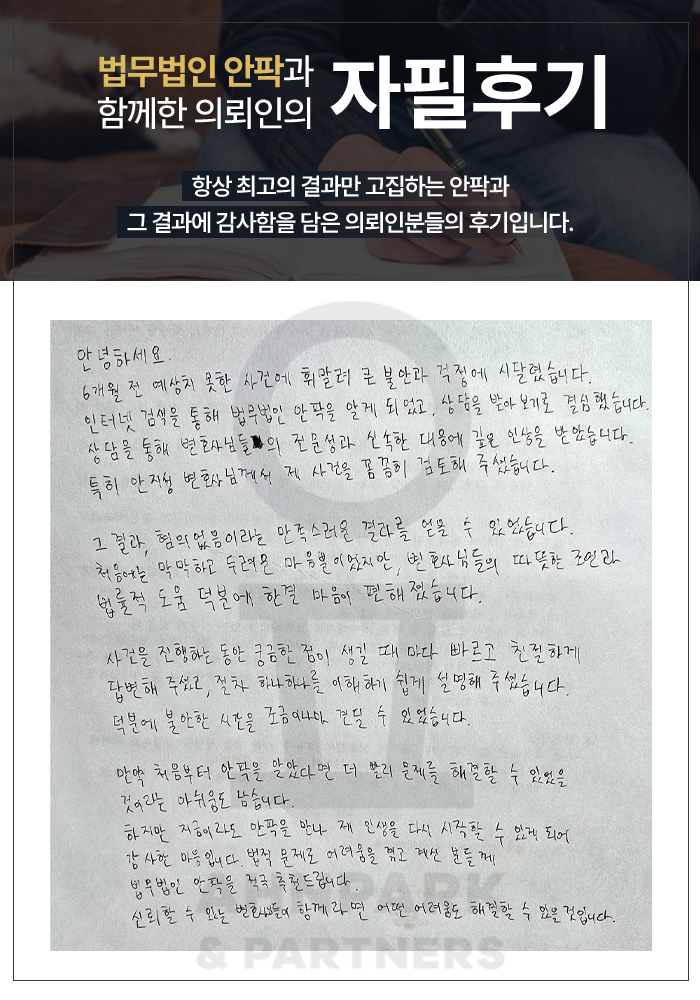 법무법인 안팍과
함께한 의뢰인의
자필후기
항상 최고의 결과만 고집하는 안팍과
그 결과에 감사함을 담은 의뢰인분들의 후기입니다.
안녕하세요.
6개월 전 예상치 못한 사건에 휘말려 큰 불안과 걱정에 시달렸습니다.
인터넷 검색을 통해 법무법인 안팍을 알게 되었고, 상담을 받아 보기로 결심했습니다.
상담을 통해 변호사님들의 전문성과 신속한 대응에 깊은 인상을 받았습니다.
특히 안지성 변호사님께서 제 사건을 꼼꼼히 검토해 주셨습니다.
그 결과, 혐의없음이라는 만족스러운 결과를 얻을 수 있었습니다.
처음에는 막막하고 두려운 마음뿐이었지만, 변호사님들의 따뜻한 조언과
법률적 도움 덕분에 한결 마음이 편해졌습니다.
사건을 진행하는 동안 궁금한 점이 생길 때 마다 빠르고 친절하게
답변해 주셨고, 절차 하나하나를 이해하기 쉽게 설명해 주셨습니다.
덕분에 불안한 시간을 조금이나마 견딜 수 있었습니다.
만약 처음부터 안팍을 알았다면 더 빨리 문제를 해결할 수 있었을
것이라는 아쉬움도 남습니다.
하지만 지금이라도 안팍을 만나 제 인생을 다시 시작할 수 있게 되어
감사한 마음입니다. 법적 문제로 어려움을 겪고 계신 분들께
법무법인 안팍을 적극 추천드립니다.
신뢰할 수 있는 변호사님들이 함께라면 어떤 어려움도 해결할 수 있을 것입니다.
& PARTNERS